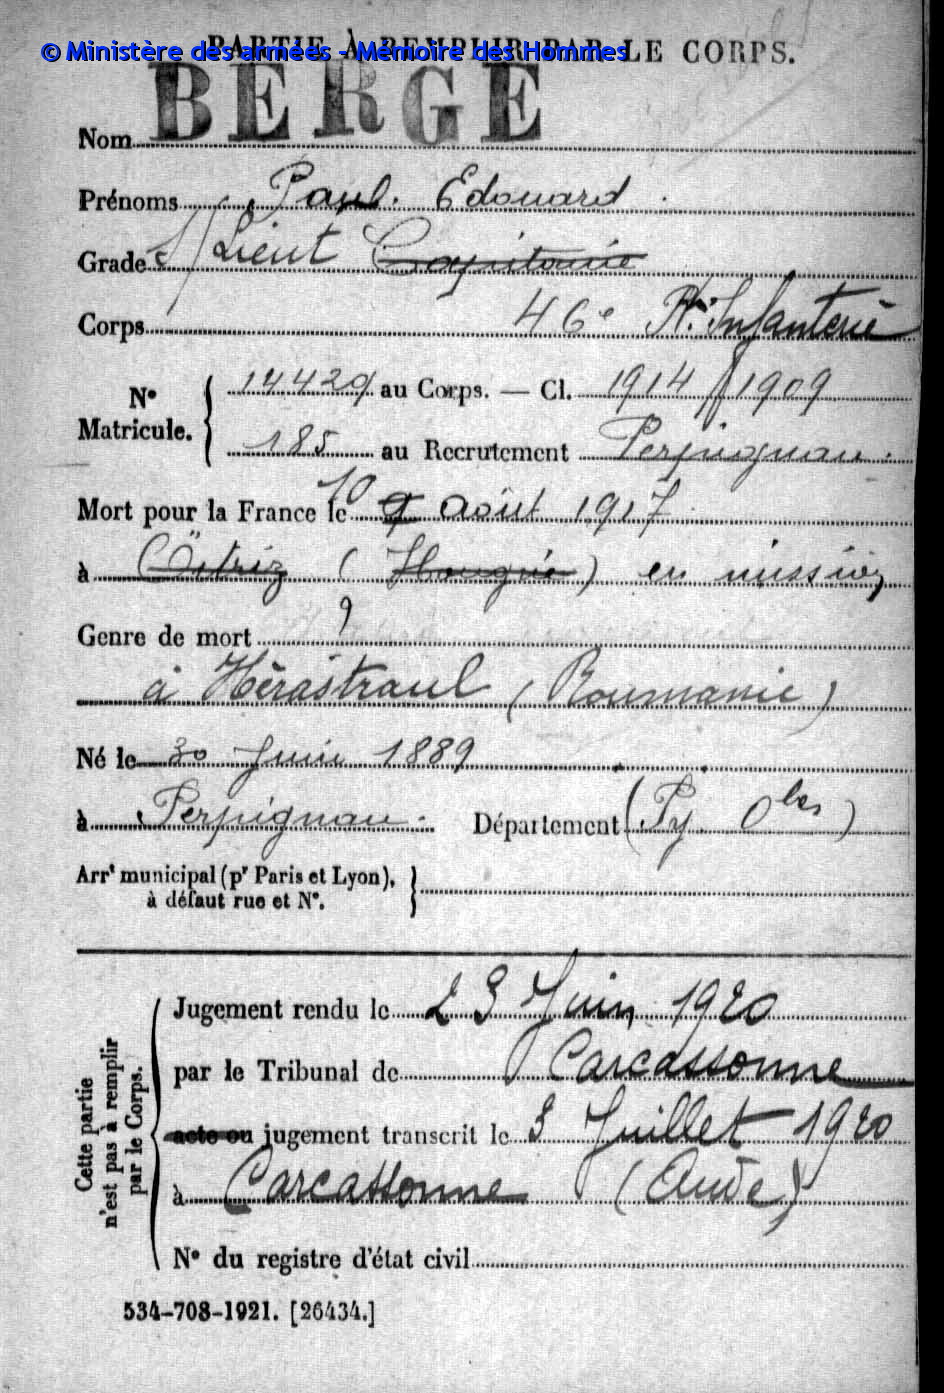 PARTIE À REMPLIR PAR LE CORPS.
© Ministère des armées - Mémoire des Hommes
Nom BERGE
Prénoms Paul. Edouard.
Grade S/Lieut Capitaine
Corps 46e Rt. Infanterie
No Matricule. { 14429 au Corps. — Cl. 1914 / 1909
185 au Recrutement Perpignan.
Mort pour la France le 10 9 Août 1917
à Ostriz (Hongrie) en mission
Genre de mort ?
à Hérastraul (Roumanie)
Né le 30 Juin 1889
à Perpignan. Département (Py. Oles)
Arrt municipal (pr Paris et Lyon),
à défaut rue et No. }
Cette partie n'est pas à remplir par le Corps.
Jugement rendu le 23 Juin 1920
par le Tribunal de Carcassonne
acte ou jugement transcrit le 3 Juillet 1920
à Carcassonne (Aude)
No du registre d'état civil
534-708-1921. [26434.]